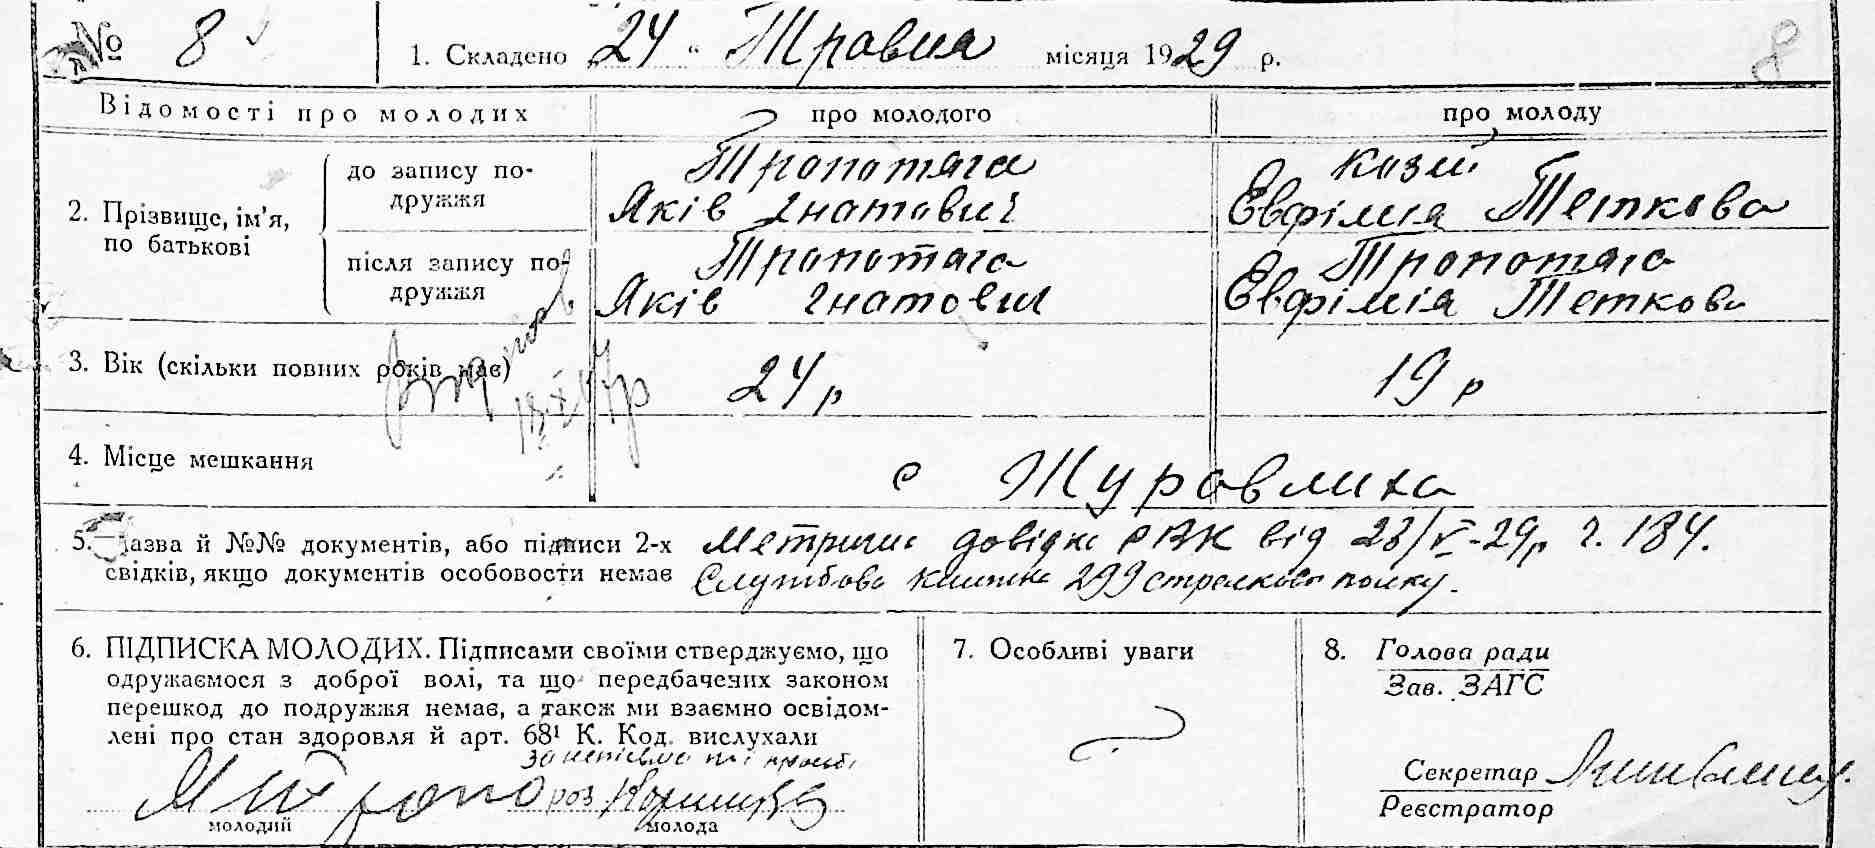 № 8
1. Складено „24“ Травня місяця 1929 р.
8
Відомості про молодих
про молодого
про молоду
2. Прізвище, ім'я, по батькові
до запису по-
дружжя
Тропотяга
Яків Гнатович
Козій
Евфімія Теткова
після запису по-
дружжя
Тропотяга
Яків Гнатович
Тропотяга
Евфімія Теткова
3. Вік (скільки повних років має)
24 р
19 р
4. Місце мешкання
с Журавлиха
5. Назва й №№ документів, або підписи 2-х
свідків, якщо документів особовости немає
довідка від 23/V-29р ч. 184.
Службова книжка 299 полку.
6. ПІДПИСКА МОЛОДИХ. Підписами своїми стверджуємо, що
одружаємося з доброї волі, та що передбачених законом
перешкод до подружжя немає, а також ми взаємно освідом-
лені про стан здоровля й арт. 68¹ К. Код. вислухали
молодий
молода
7. Особливі уваги
8. Голова ради
Зав. ЗАГС
Секретар
Реєстратор